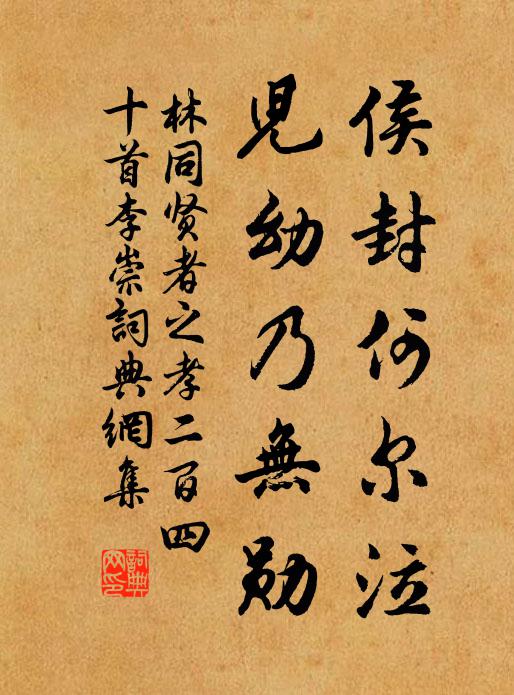 侯封何尔泣
児幼乃無勋
林同贤者之孝二百四
十首李崇詞典網集
詞典網印